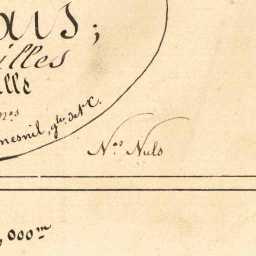 aus;
illes
lle
nos
mesnil, gde de N.C.
Nos Nuls
, 000m